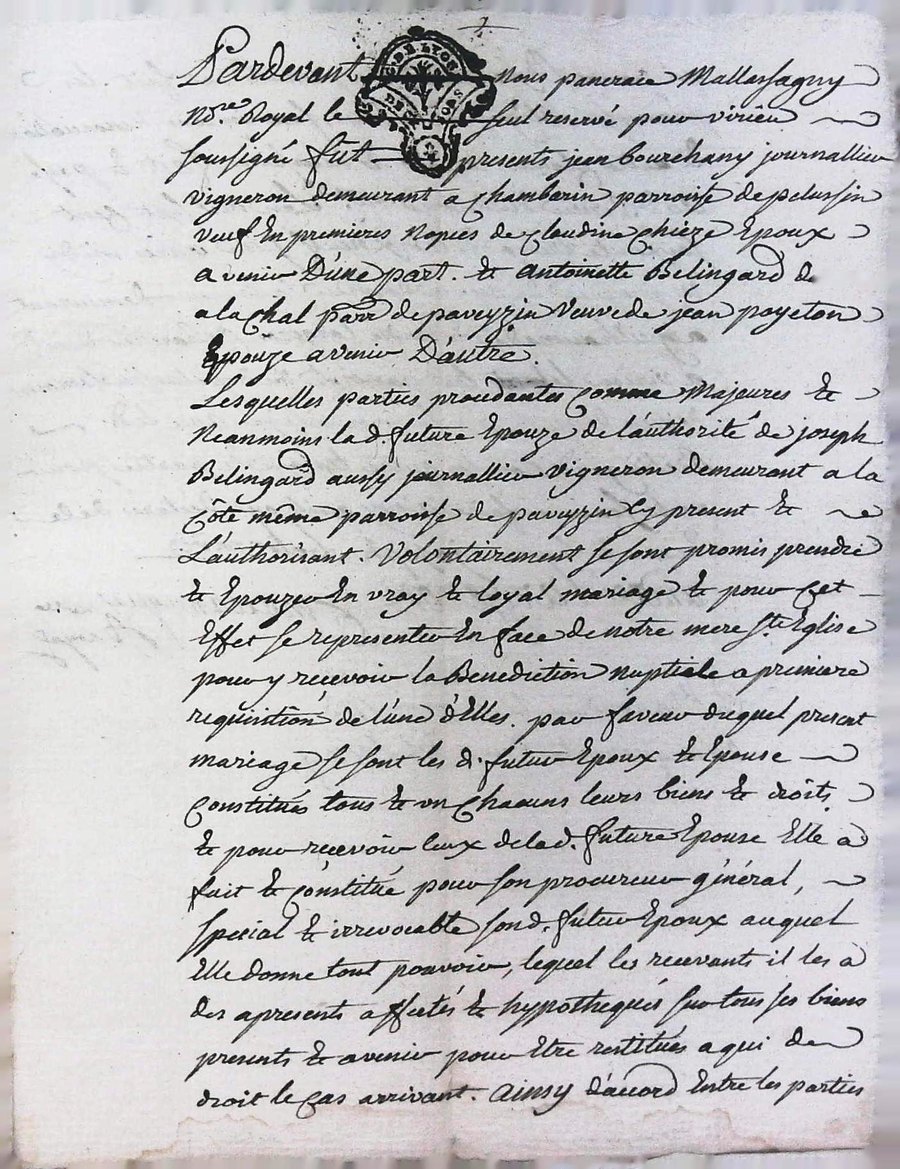 Pardevant Nous pancrace Mallassagny
No.re Royal le seul reservé pour virieu
soussigné fut presents jean bourchany journallier
vigneron demeurant a chambarin parroisse de pelussin
veuf En premieres Nopces de Claudine Chieze Epoux
a venir D'une part. & antoinette Belingard de
a la Chal parr de paveyzin veuve de jean poyeton
Epouze a venir D'autre.
Lesquelles parties procedantes Comme Majeures &
Neanmoins la d. future Epouze de l'authorité de joseph
Belingard aussy journallier vigneron demeurant a la
Côte même parroisse de paveyzin Cy present &
L'authorisant. Volontairement se sont promis prendre
& Epouzer En vray & loyal mariage & pour Cet
Effet se representer En face de notre mere Ste Eglise
pour y recevoir la Benediction nuptiale a premiere
requisition de l'une d'Elles. par faveur duquel present
mariage se sont les d. futur Epoux & Epouse
Constitués tous & un Chacuns leurs biens & droits,
& pour recevoir Ceux de la d. future Epouse Elle a
fait & Constitué pour son procureur général,
special & irrevocable son d. futur Epoux auquel
Elle donne tout pouvoir, lequel les recevants il les à
des apresents affectés & hypothequés sur tous ses biens
presents & avenir pour Etre restitués a qui de
droit le Cas arrivant. Ainsy d'acord Entre les parties